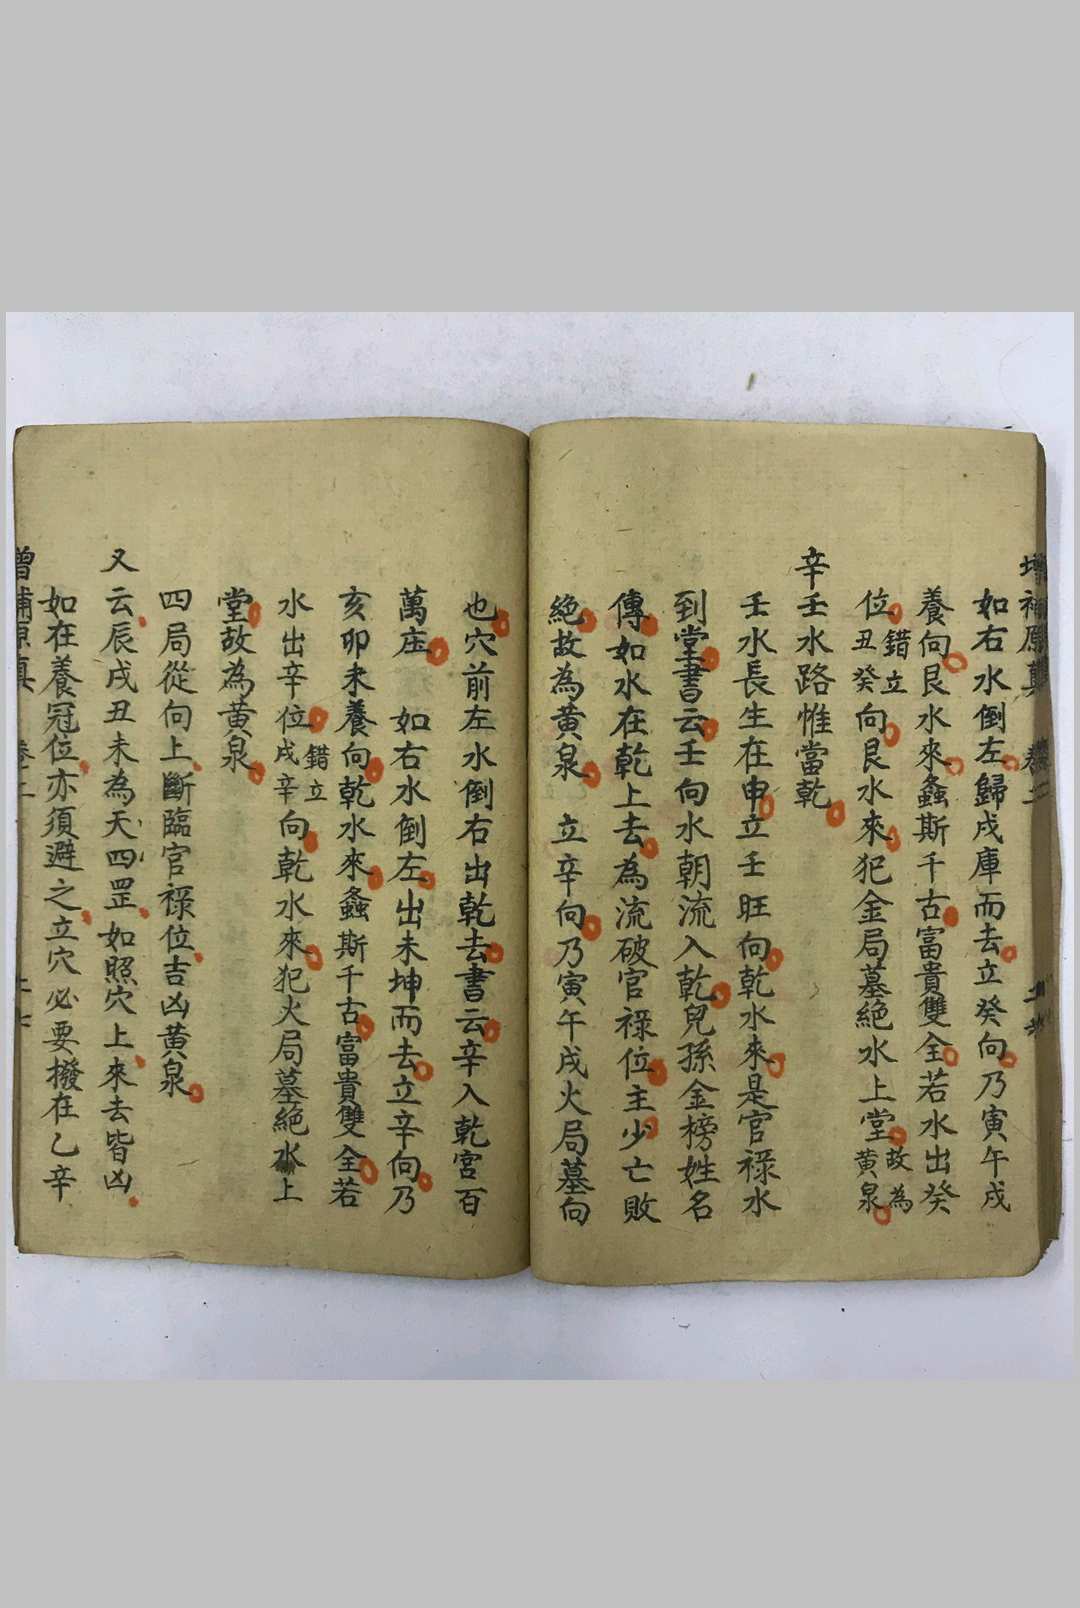 增補原真 卷二
如右水倒左歸戌庫而去立癸向乃寅午戌
養向艮水來螽斯千古富貴雙全若水出癸
位錯立丑癸向艮水來犯金局墓絕水上堂故為黃泉
辛壬水路惟當乾
壬水長生在申立壬旺向乾水來是官祿水
到堂書云壬向水朝流入乾兒孫金榜姓名
傳如水在乾上去為流破官祿位主少亡敗
絕故為黃泉 立辛向乃寅午戌火局墓向
也穴前左水倒右出乾去書云辛入乾宮百
萬庄 如右水倒左出未坤而去立辛向乃
亥卯未養向乾水來螽斯千古富貴雙全若
水出辛位錯立戌辛向乾水來犯火局墓絕水上
堂故為黃泉
四局從向上斷臨官祿位吉凶黃泉
又云辰戌丑未為天四罡如照穴上來去皆凶
如在養冠位亦須避之立穴必要撥在乙辛
增補原真 卷二